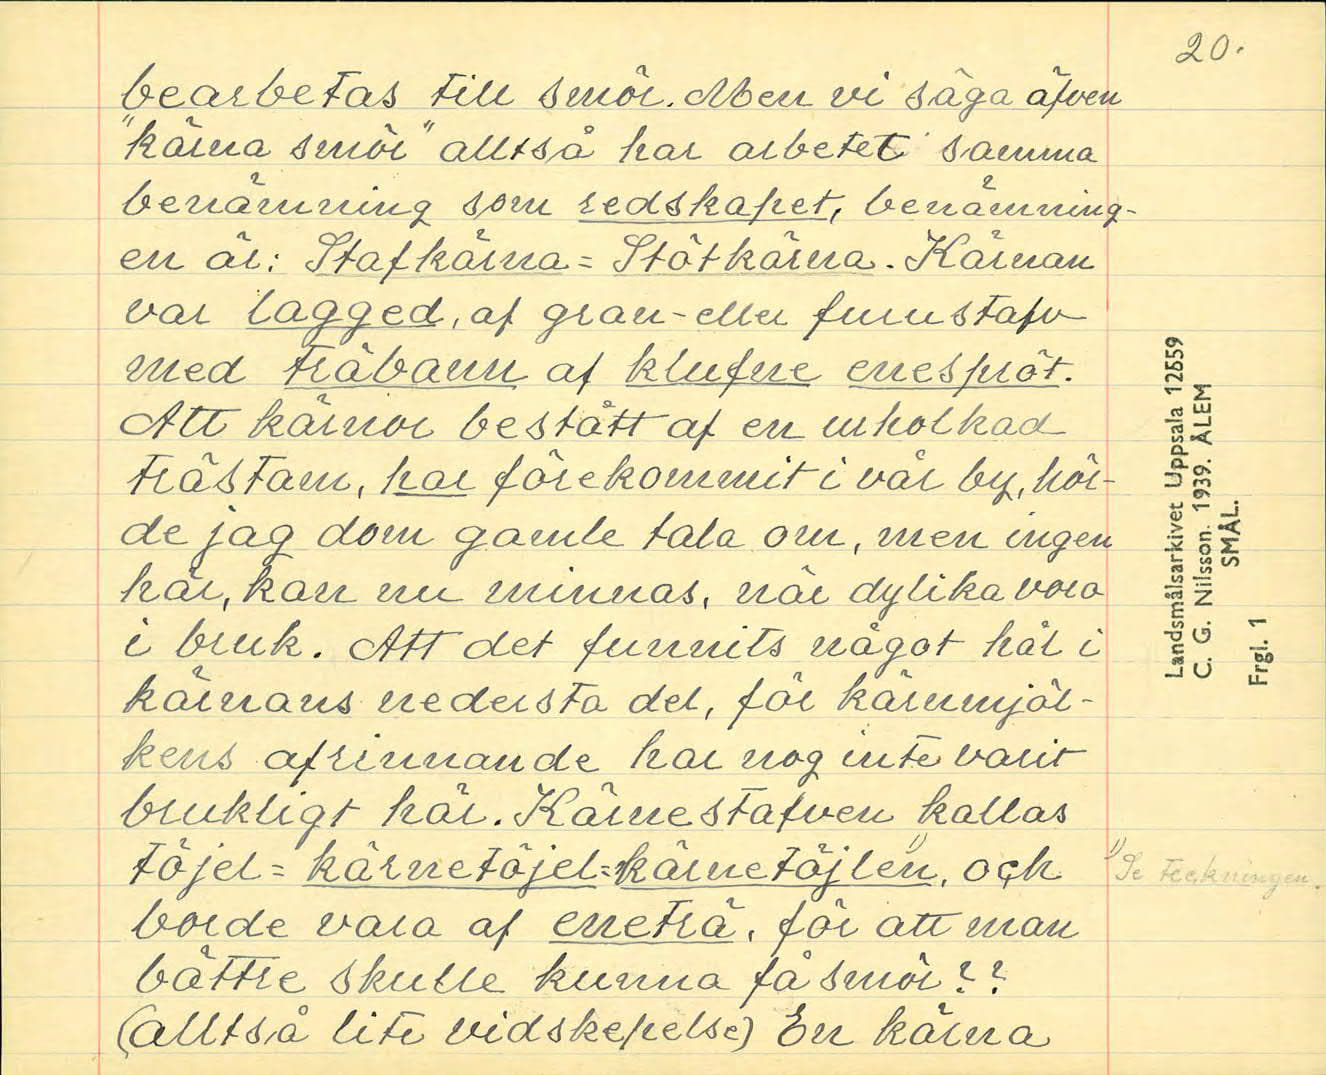 20.
bearbetas till smör. Men vi säga äfven
"kärna smör" alltså har arbetet samma
benämning som redskapet, benämning-
en är: Stafkärna = Stötkärna. Kärnan
var lagged, af gran- eller furustafv
med träbann af klufne enespröt.
Att kärnor bestått af en urholkad
trästam, har förekommit i vår by, hör-
de jag dom gamle tala om, men ingen
här, kan nu minnas, när dylika vora
i bruk. Att det funnits något hål i
kärnans nedersta del, för kärnmjöl-
kens afrinnande har nog inte varit
brukligt här. Kärnestafven kallas
töjel = kärnetöjel = kärnetöjlen 1), och
borde vara af eneträ, för att man
bättre skulle kunna få smör??
(alltså lite vidskepelse) En kärna
1) Se teckningen.
Landsmålsarkivet Uppsala 12559
C. G. Nilsson. 1939. ÅLEM
SMÅL.
Frgl. 1